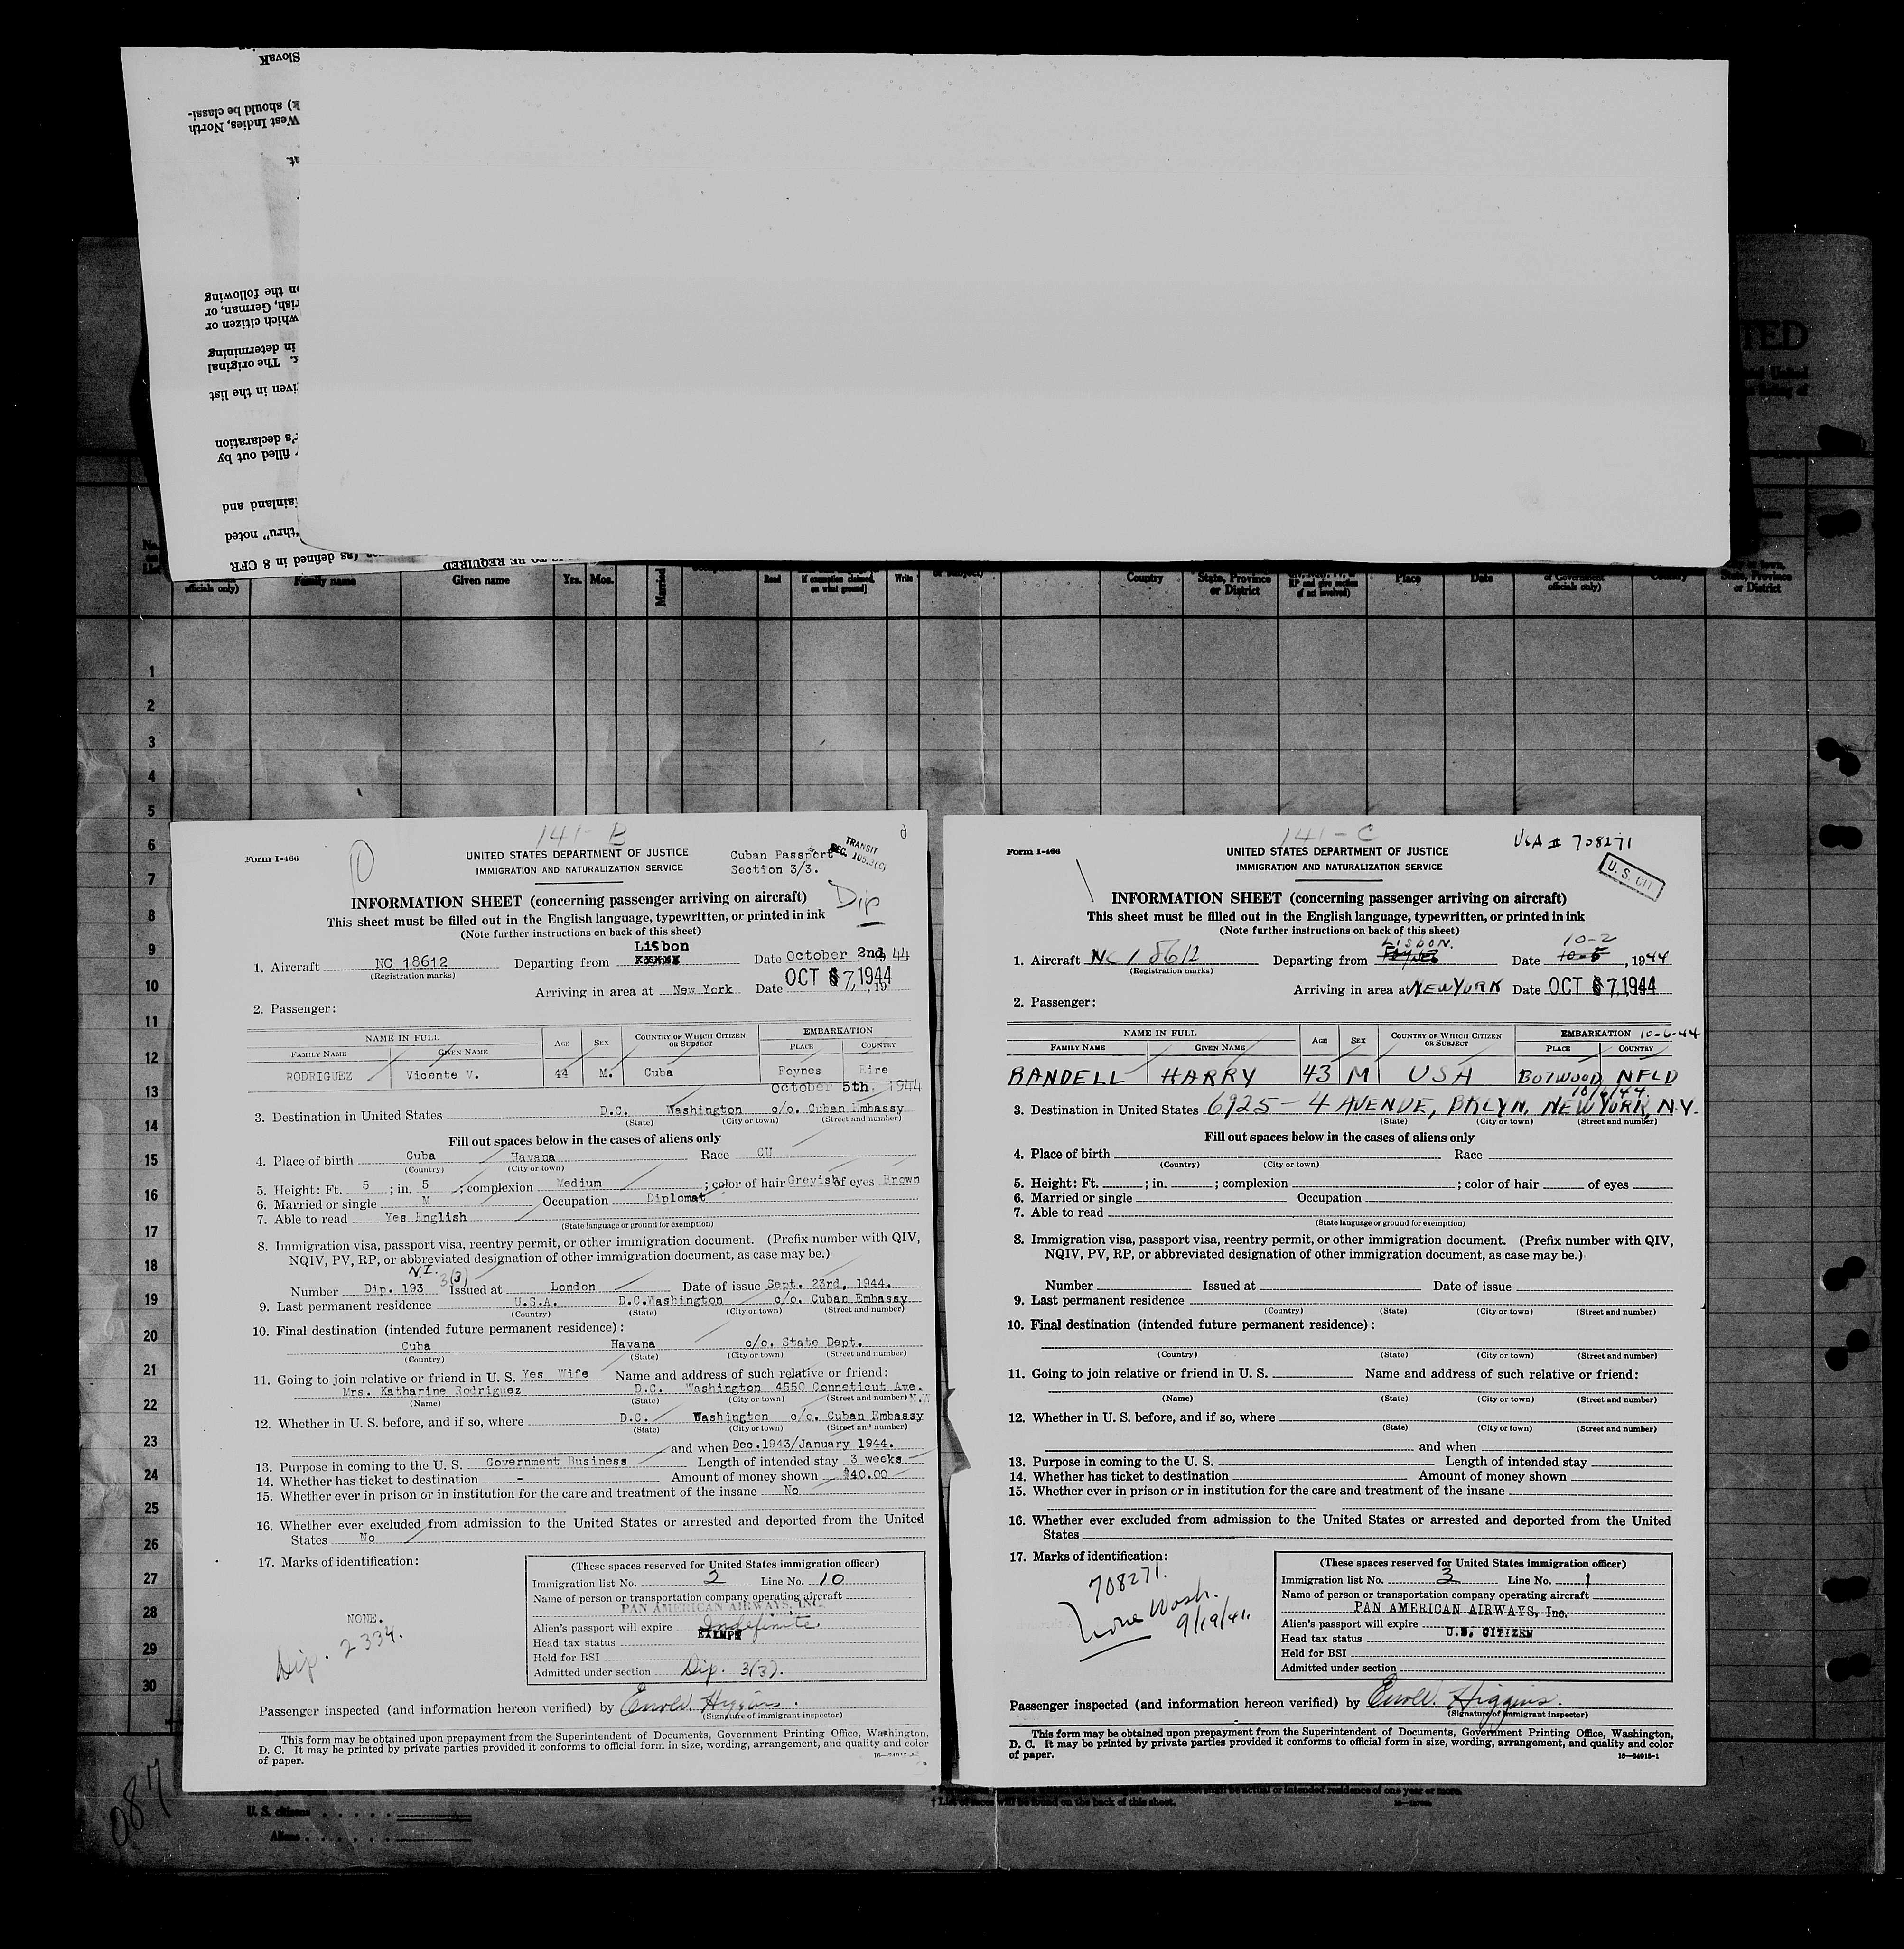 SlovaK
k) should be classi-
West Indies, North
at.
on the following
rish, German, or
which citizen or
in determining
The original
given in the list
's declaration
filled out by
ainland and
"thru" noted
(as defined in 8 CFR
TO BE REQUIRED
TED
officials only)
Family name
Given name
Yrs.
Mos.
Married
Read
If exemption claimed, on what ground]
Write
or subject)
Country
State, Province or District
RP and give section of act involved)
Place
Date
or Government officials only)
Country
State, Province or District
1
2
3
4
5
6
7
8
9
10
11
12
13
14
15
16
17
18
19
20
21
22
23
24
25
26
27
28
29
30
141-B
Form I-466
UNITED STATES DEPARTMENT OF JUSTICE
IMMIGRATION AND NATURALIZATION SERVICE
Cuban Passport
Section 3/3.
TRANSIT
Dip
INFORMATION SHEET (concerning passenger arriving on aircraft)
This sheet must be filled out in the English language, typewritten, or printed in ink
(Note further instructions on back of this sheet)
Lisbon
1. Aircraft NC 18612 Departing from Date October 2nd, 1944
(Registration marks)
Arriving in area at New York Date OCT 7, 1944
2. Passenger:
NAME IN FULL
FAMILY NAME
GIVEN NAME
AGE
SEX
COUNTRY OF WHICH CITIZEN OR SUBJECT
EMBARKATION
PLACE
COUNTRY
RODRIGUEZ Vicente V. 44 M. Cuba Foynes Eire
October 5th. 1944
3. Destination in United States D.C. Washington c/o. Cuban Embassy
(State) (City or town) (Street and number)
Fill out spaces below in the cases of aliens only
4. Place of birth Cuba Havana Race CU
(Country) (City or town)
5. Height: Ft. 5 ; in. 5 ; complexion Medium ; color of hair Greyish of eyes Brown
6. Married or single M Occupation Diplomat
7. Able to read Yes English
(State language or ground for exemption)
8. Immigration visa, passport visa, reentry permit, or other immigration document. (Prefix number with QIV,
NQIV, PV, RP, or abbreviated designation of other immigration document, as case may be.)
N.I. 3(3)
Number Dip. 193 Issued at London Date of issue Sept. 23rd, 1944.
9. Last permanent residence U.S.A. D.C. Washington c/o. Cuban Embassy
(Country) (State) (City or town) (Street and number)
10. Final destination (intended future permanent residence):
Cuba Havana c/o. State Dept.
(Country) (State) (City or town) (Street and number)
11. Going to join relative or friend in U. S. Yes Wife Name and address of such relative or friend:
Mrs. Katharine Rodriguez D.C. Washington 4550 Conneticut Ave. N.W
(Name) (State) (City or town) (Street and number)
12. Whether in U. S. before, and if so, where D.C. Washington c/o. Cuban Embassy
(State) (City or town) (Street and number)
and when Dec.1943/January 1944.
13. Purpose in coming to the U. S. Government Business Length of intended stay 3 weeks
14. Whether has ticket to destination - Amount of money shown $40.00
15. Whether ever in prison or in institution for the care and treatment of the insane No
16. Whether ever excluded from admission to the United States or arrested and deported from the United
States No
17. Marks of identification:
NONE.
Dip. 2334.
(These spaces reserved for United States immigration officer)
Immigration list No. 2 Line No. 10
Name of person or transportation company operating aircraft
PAN AMERICAN AIRWAYS, INC.
Alien's passport will expire Indefinite
Head tax status EXEMPT
Held for BSI
Admitted under section Dip. 3(3).
Passenger inspected (and information hereon verified) by Errol d. Higgins.
(Signature of immigrant inspector)
This form may be obtained upon prepayment from the Superintendent of Documents, Government Printing Office, Washington,
D. C. It may be printed by private parties provided it conforms to official form in size, wording, arrangement, and quality and color
of paper.
141-C
Form I-466
UNITED STATES DEPARTMENT OF JUSTICE
IMMIGRATION AND NATURALIZATION SERVICE
USA # 708271
U. S. CIT.
INFORMATION SHEET (concerning passenger arriving on aircraft)
This sheet must be filled out in the English language, typewritten, or printed in ink
(Note further instructions on back of this sheet)
LISBON. 10-2
1. Aircraft NC 18612 Departing from FOYNES Date 10-5, 1944
(Registration marks)
Arriving in area at NEW YORK Date OCT 7, 1944
2. Passenger:
NAME IN FULL
FAMILY NAME
GIVEN NAME
AGE
SEX
COUNTRY OF WHICH CITIZEN OR SUBJECT
EMBARKATION 10-6-44
PLACE
COUNTRY
RANDELL HARRY 43 M USA BOTWOOD NFLD
10/6/44
3. Destination in United States 6925-4 AVENUE, BKLYN, NEW YORK, N.Y.
(State) (City or town) (Street and number)
Fill out spaces below in the cases of aliens only
4. Place of birth Race
(Country) (City or town)
5. Height: Ft. ; in. ; complexion ; color of hair of eyes
6. Married or single Occupation
7. Able to read
(State language or ground for exemption)
8. Immigration visa, passport visa, reentry permit, or other immigration document. (Prefix number with QIV,
NQIV, PV, RP, or abbreviated designation of other immigration document, as case may be.)
Number Issued at Date of issue
9. Last permanent residence
(Country) (State) (City or town) (Street and number)
10. Final destination (intended future permanent residence):
(Country) (State) (City or town) (Street and number)
11. Going to join relative or friend in U. S. Name and address of such relative or friend:
(Name) (State) (City or town) (Street and number)
12. Whether in U. S. before, and if so, where
(State) (City or town) (Street and number)
and when
13. Purpose in coming to the U. S. Length of intended stay
14. Whether has ticket to destination Amount of money shown
15. Whether ever in prison or in institution for the care and treatment of the insane
16. Whether ever excluded from admission to the United States or arrested and deported from the United
States
17. Marks of identification:
708271.
Wash.
9/19/41.
(These spaces reserved for United States immigration officer)
Immigration list No. 3 Line No. 1
Name of person or transportation company operating aircraft
PAN AMERICAN AIRWAYS, Inc.
Alien's passport will expire
Head tax status U.S. CITIZEN
Held for BSI
Admitted under section
Passenger inspected (and information hereon verified) by Errol d. Higgins.
(Signature of immigrant inspector)
This form may be obtained upon prepayment from the Superintendent of Documents, Government Printing Office, Washington,
D. C. It may be printed by private parties provided it conforms to official form in size, wording, arrangement, and quality and color
of paper.
16—24915-1
087
U. S. citizens
Aliens
shall be actual or intended residence of one year or more.
† List of races will be found on the back of this sheet.